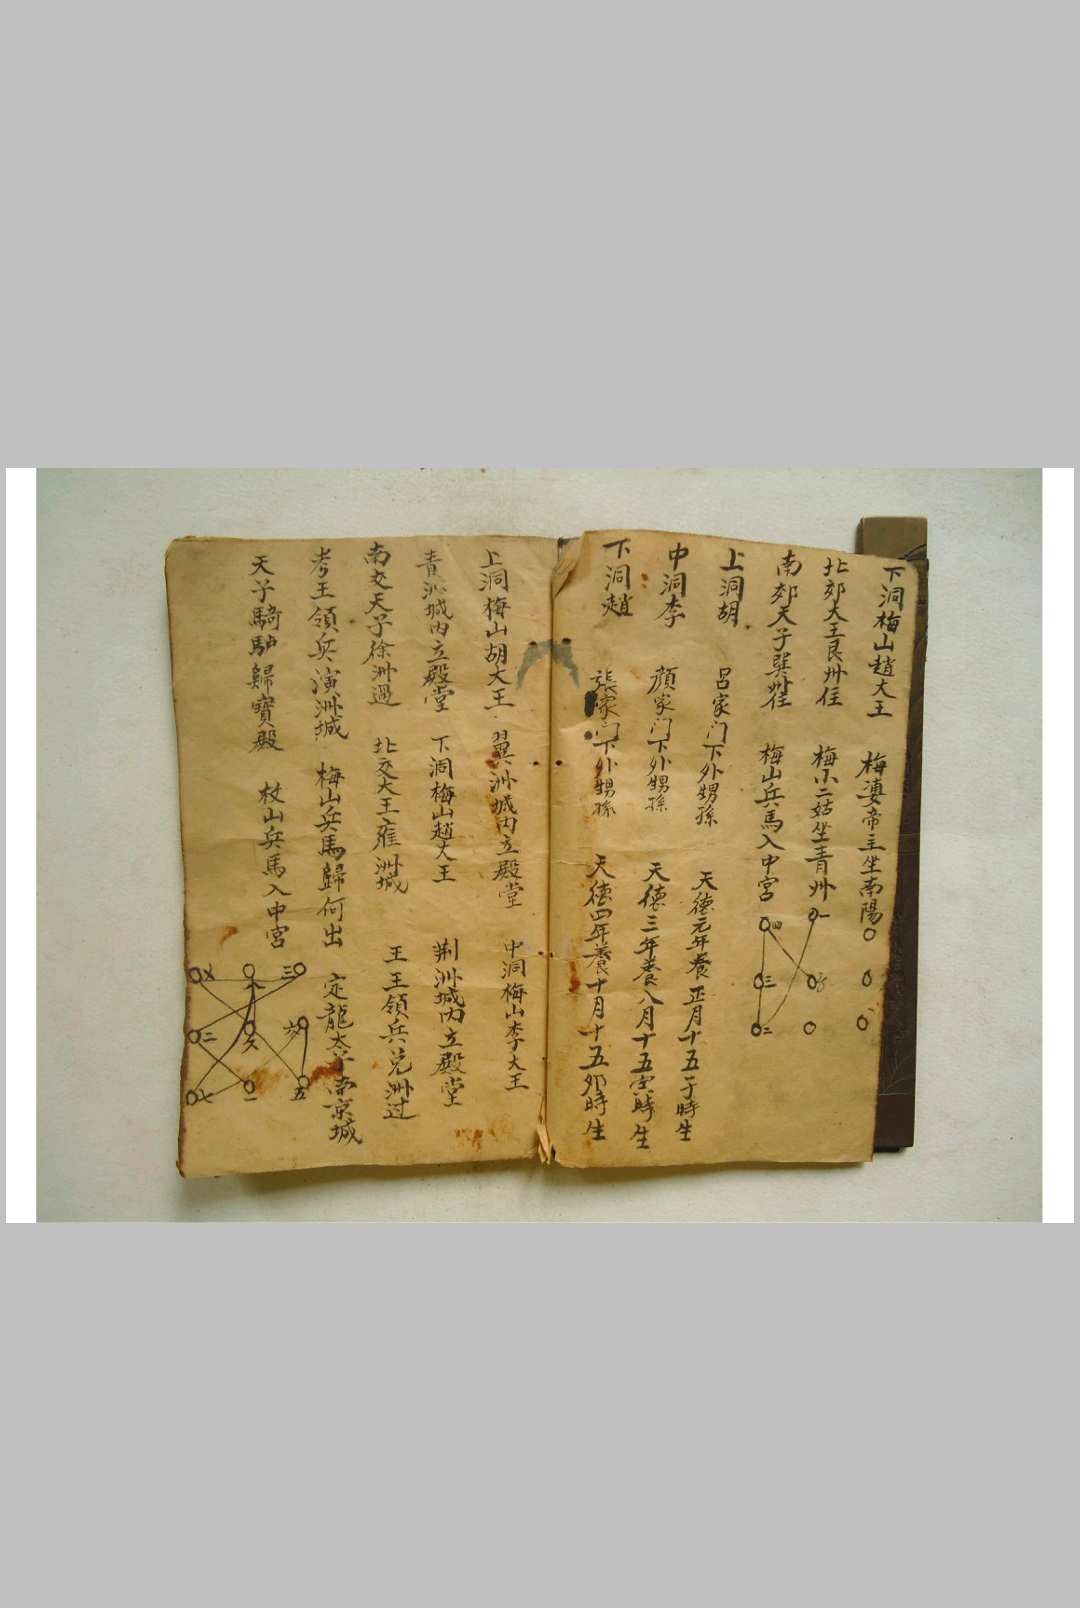 下洞梅山趙大王 梅婆帝主坐南陽
北郊大王艮州住 梅小二姑坐青州
南郊天子巽州住 梅山兵馬入中宮
一 四 三 二
上洞胡 呂家门下外甥孫 天德元年養正月十五子時生
中洞李 顏家门下外甥孫 天德三年養八月十五寅時生
下洞趙 張家门下外甥孫 天德四年養十月十五卯時生
上洞梅山胡大王 翼洲城内立殿堂 中洞梅山李大王
青洲城内立殿堂 下洞梅山趙大王 荆洲城内立殿堂
南交天子徐洲過 北交大王雍洲城 王王領兵兑洲过
考王領兵演洲城 梅山兵馬歸何出 定龍太子南京城
天子騎馿歸寶殿 枚山兵馬入中宮
三 八 二 六 七 一 五